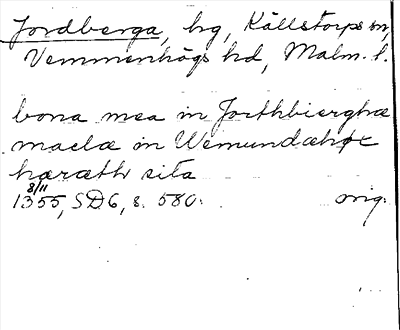 Jordberga, hg, Källstorps sn,
Vemmenhögs hd, Malm. l.
bona mea in Jorthbierghæ
maelæ in Wemundæhøc
hæræth sita
8/11
1355, SD6, s. 580. orig.